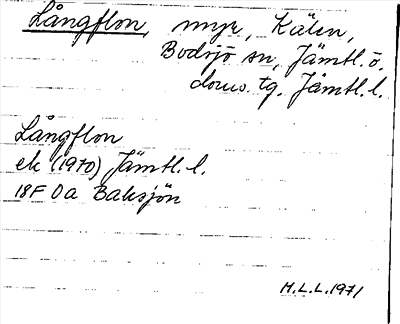 Långflon, myr, Kälen,
Bodsjö sn, Jämtl. ö.
doms. tg. Jämtl. l.
Långflon
ek (1970) Jämtl. l.
18F 0a Baksjön
H.L.L. 1971